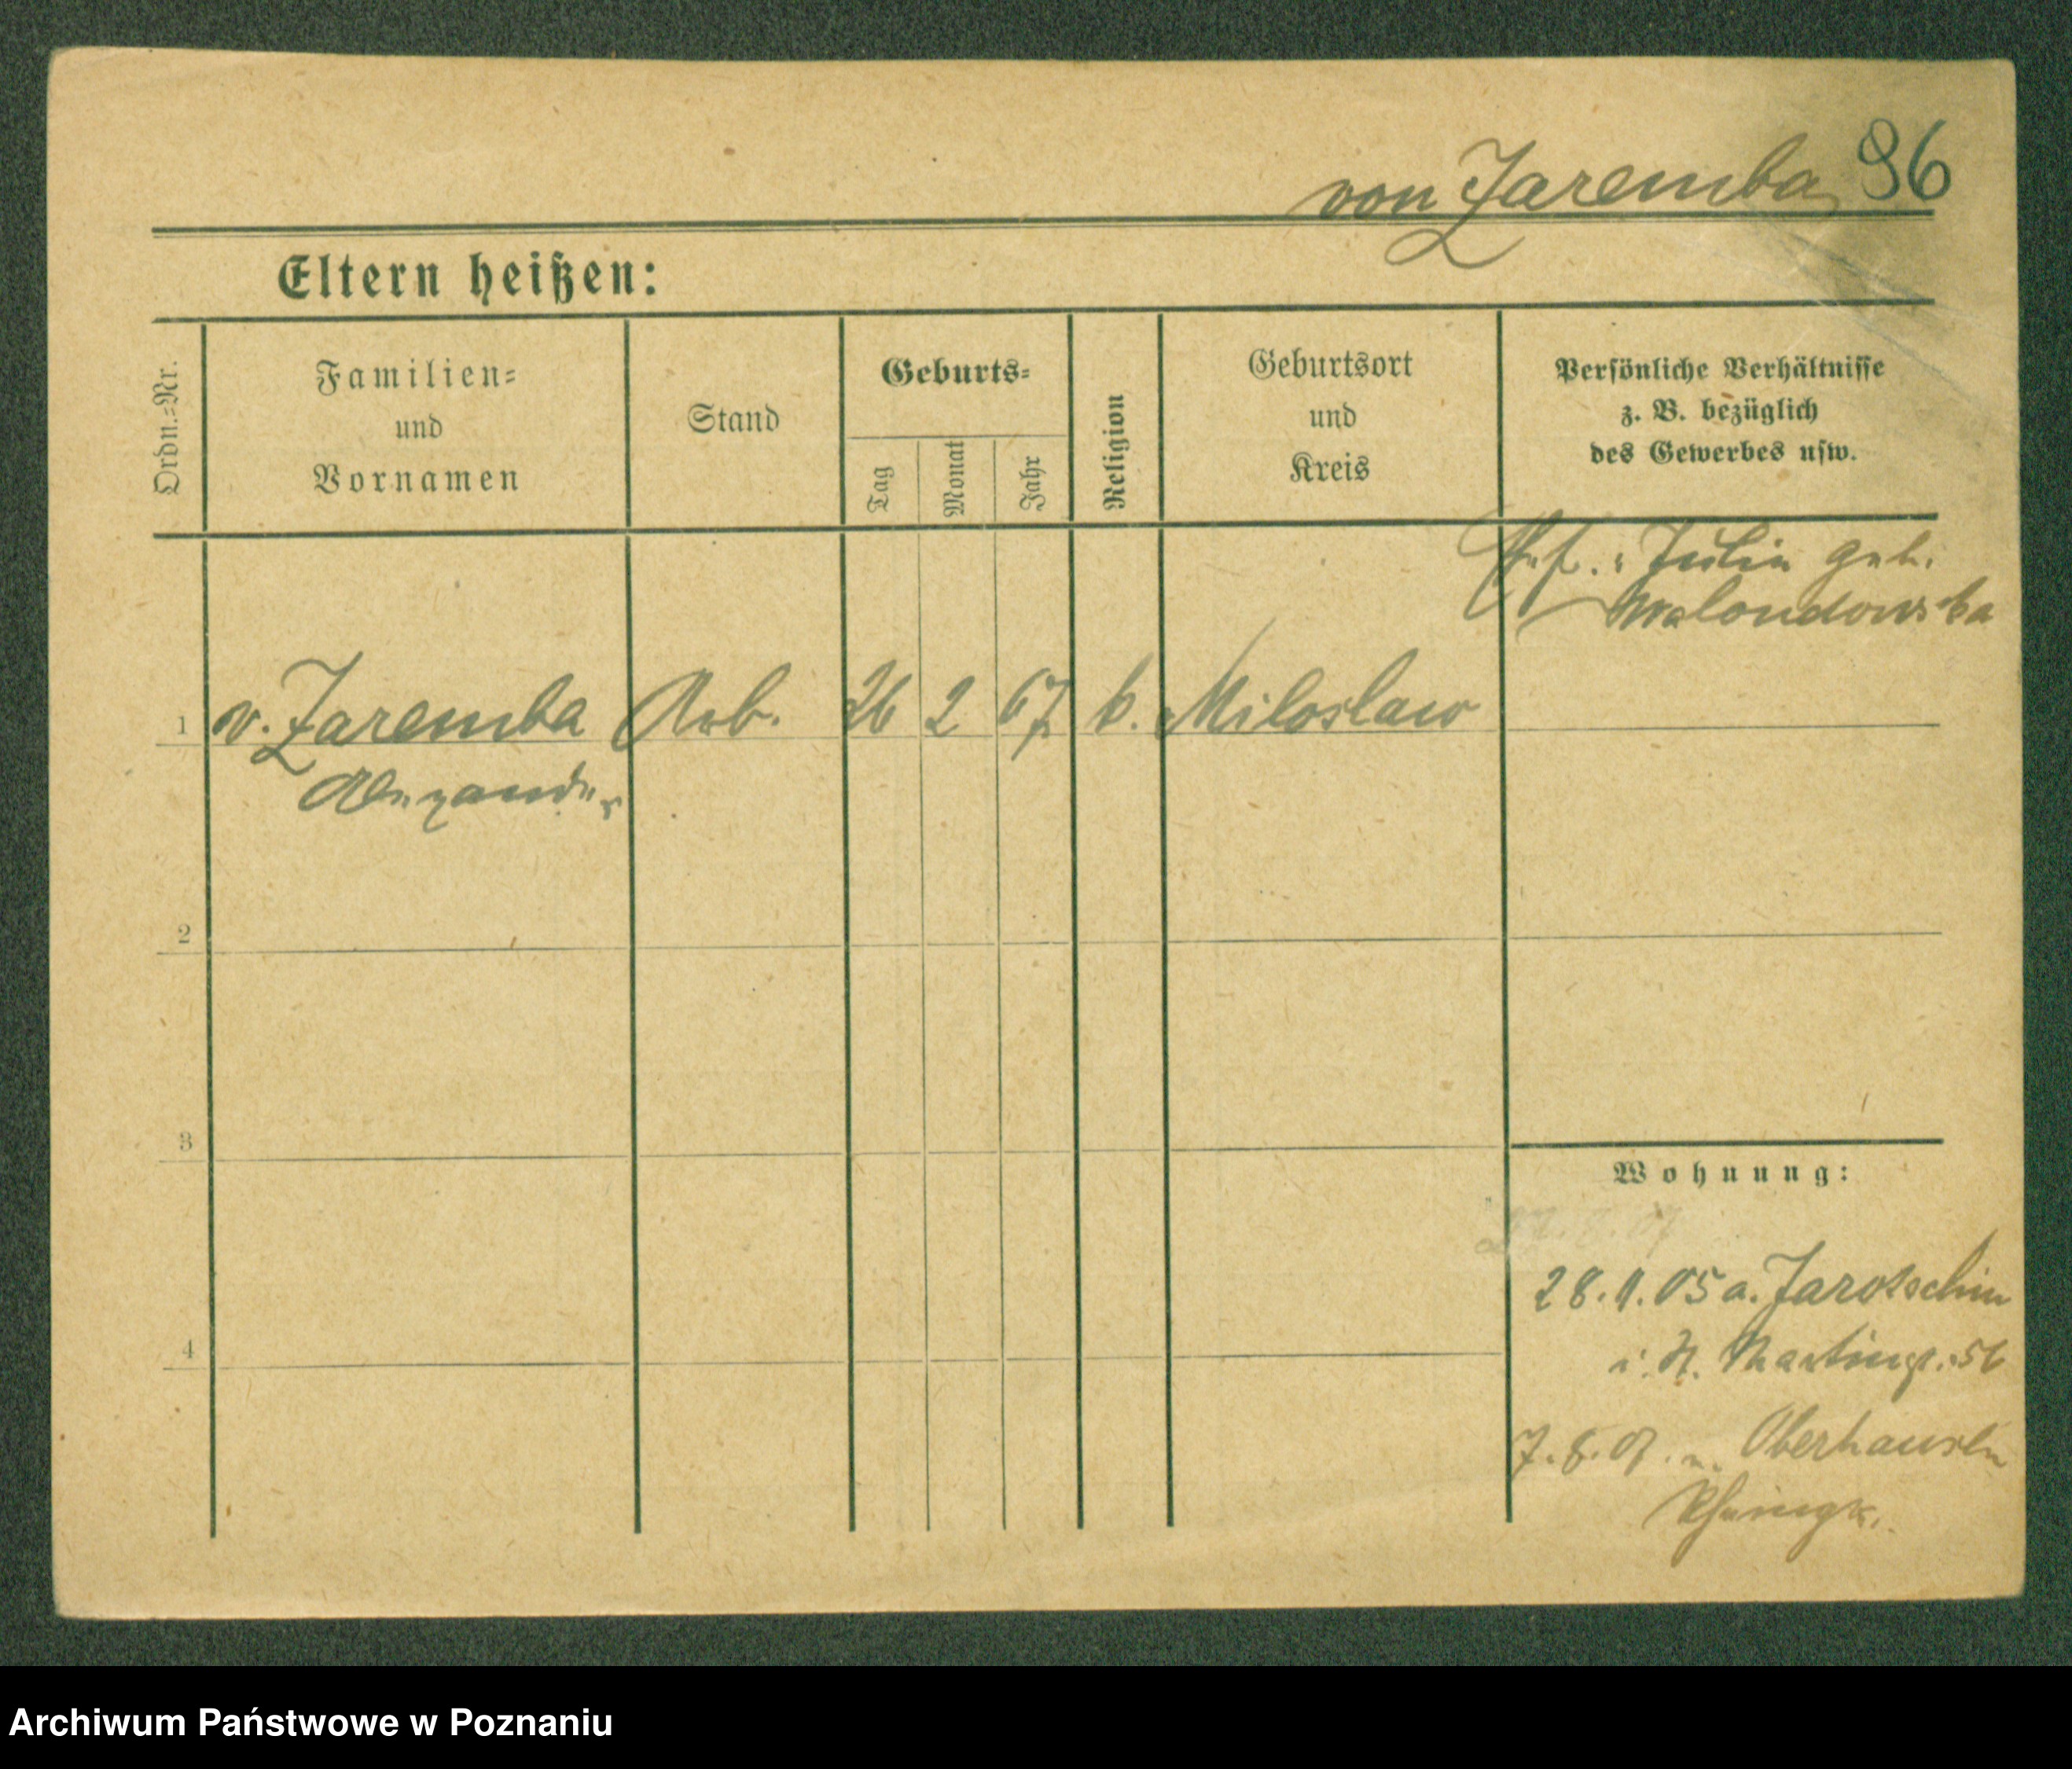 von Zaremba 96
Eltern heißen:
Ordn.=Nr.
Familien=
und
Vornamen
Stand
Geburts=
Tag
Monat
Jahr
Religion
Geburtsort
und
Kreis
Persönliche Verhältnisse
z. B. bezüglich
des Gewerbes usw.
Ehf.: Julia geb.
1 v. Zaremba Arb. 26 2 67 k. Miloslaw
Alexander
2
3
4
Wohnung:
28. 05 a. Jarotschin
i. H. Martinstr. 56
7.8.07. n. Oberhausen
Archiwum Państwowe w Poznaniu